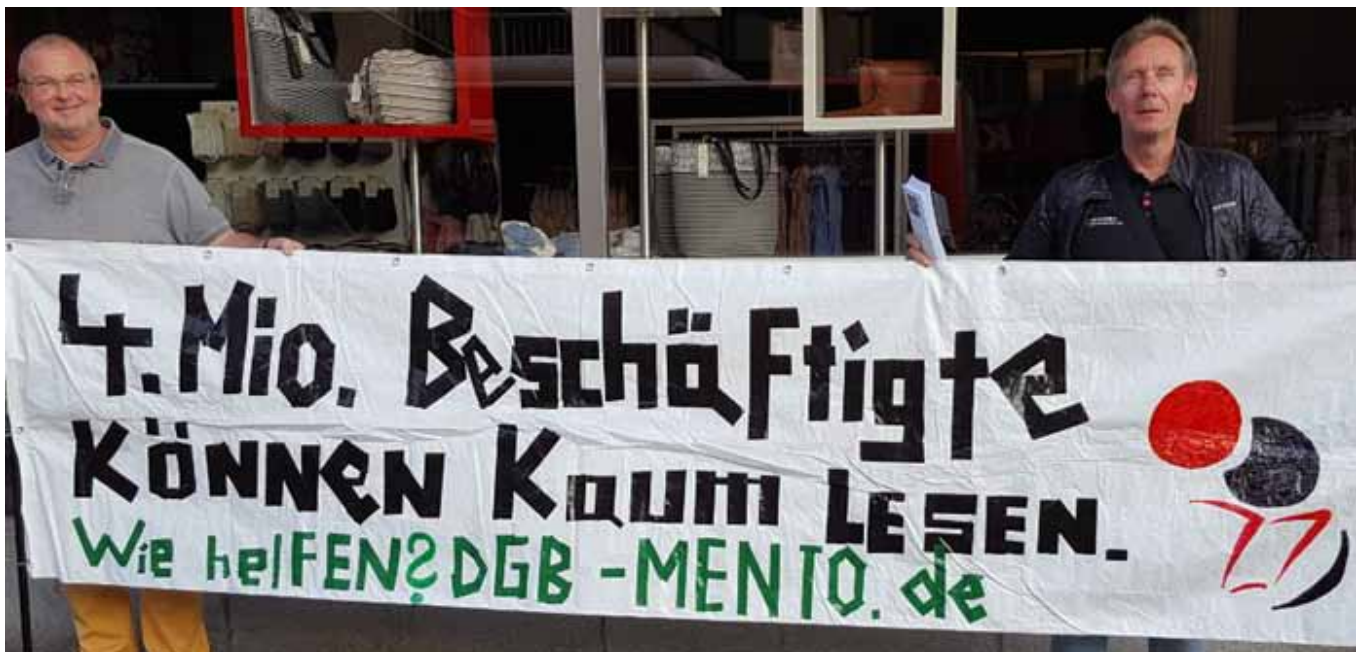 4. Mio. Beschäftigte
Können Kaum LESEN.
Wie helFEN? DGB-MENTO.de